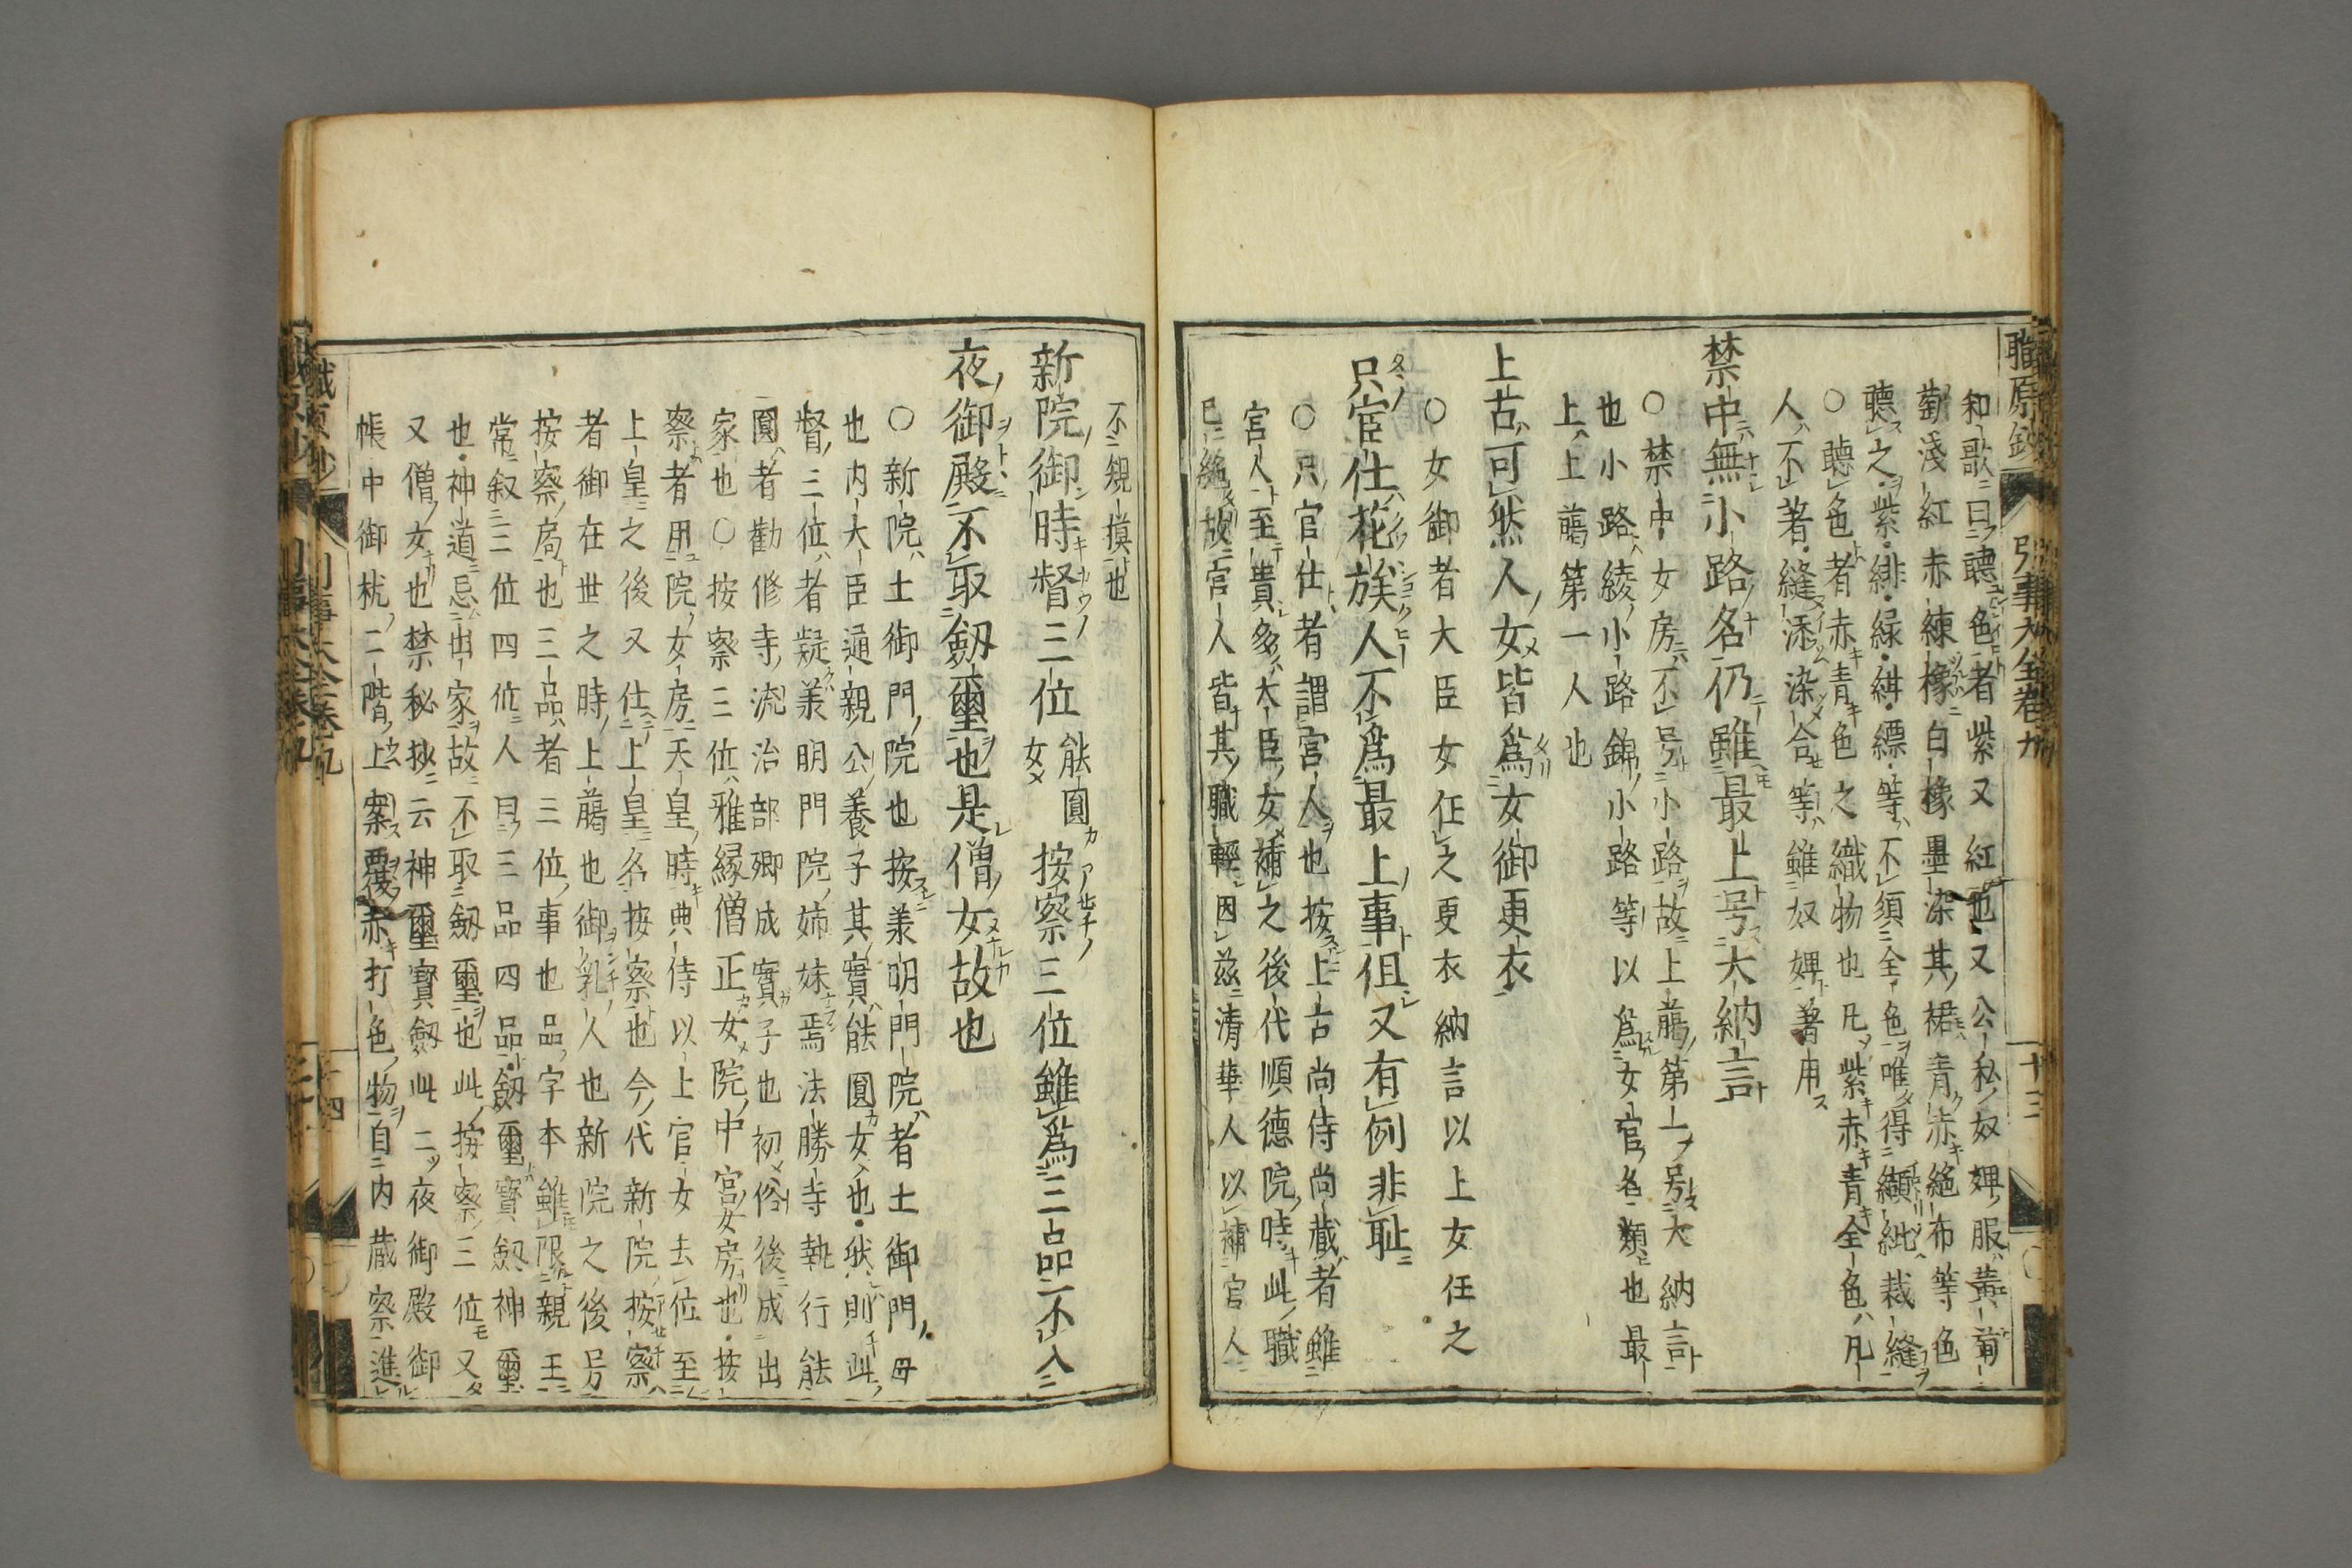 職原鈔 引事大全卷九 十三
和歌曰聴色者紫又紅也又公私奴婢服黃
蒭淺紅赤練橡白橡墨染其裙青赤絁布等色
聴之紫緋緑紺縹等不須全色唯得纈紕裁縫
○聴色者赤青色之織物也凡紫赤青全色凡
人不著縫添染合等雖奴婢著用
禁中無小路名仍雖最上号大納言
○禁中女房不号小路故上﨟第一号大納言
也小路綾小路錦小路等以爲女官名類也最
上上﨟第一人也
上古可然人女皆爲女御更衣
○女御者大臣女任之更衣納言以上女任之
只宦仕花族人不爲最上事但又有例非耻
○只官仕者謂宮人也按上古尚侍尚藏者雖
官人至貴多大臣女補之後代順德院時此職
已絶故官人皆其職輕因茲淸華人以補官人
不規摸也
新院御時督三位 能圓女 按察三位雖爲三品不入
夜御殿不取劔璽也是僧女故也
○新院土御門院也按羕明門院者土御門母
也内大臣通親公養子其實能圓女也然則此
督三位者疑羕明門院姉妹焉法勝寺執行能
圓者勸修寺流治部卿成實子也初俗後成出
家也○按察三位雅縁僧正女院中宮女房也按
察者用院女房天皇時典侍以上官女去位至
上皇之後又仕上皇名按察也今代新院按察
者御在世之時上﨟也御乳人也新院之後号
按察局也三品者三位事也品字本雖限親王
常叙二位四位人曰三品四品劔璽寶劔神璽
也神道忌出家故不取劔璽也此按察三位又
又僧女也禁秘抄云神璽寶劔此二夜御殿御
帳中御枕二階上案覆赤打色物自内蔵寮進
職原鈔 引事大全卷九 十四